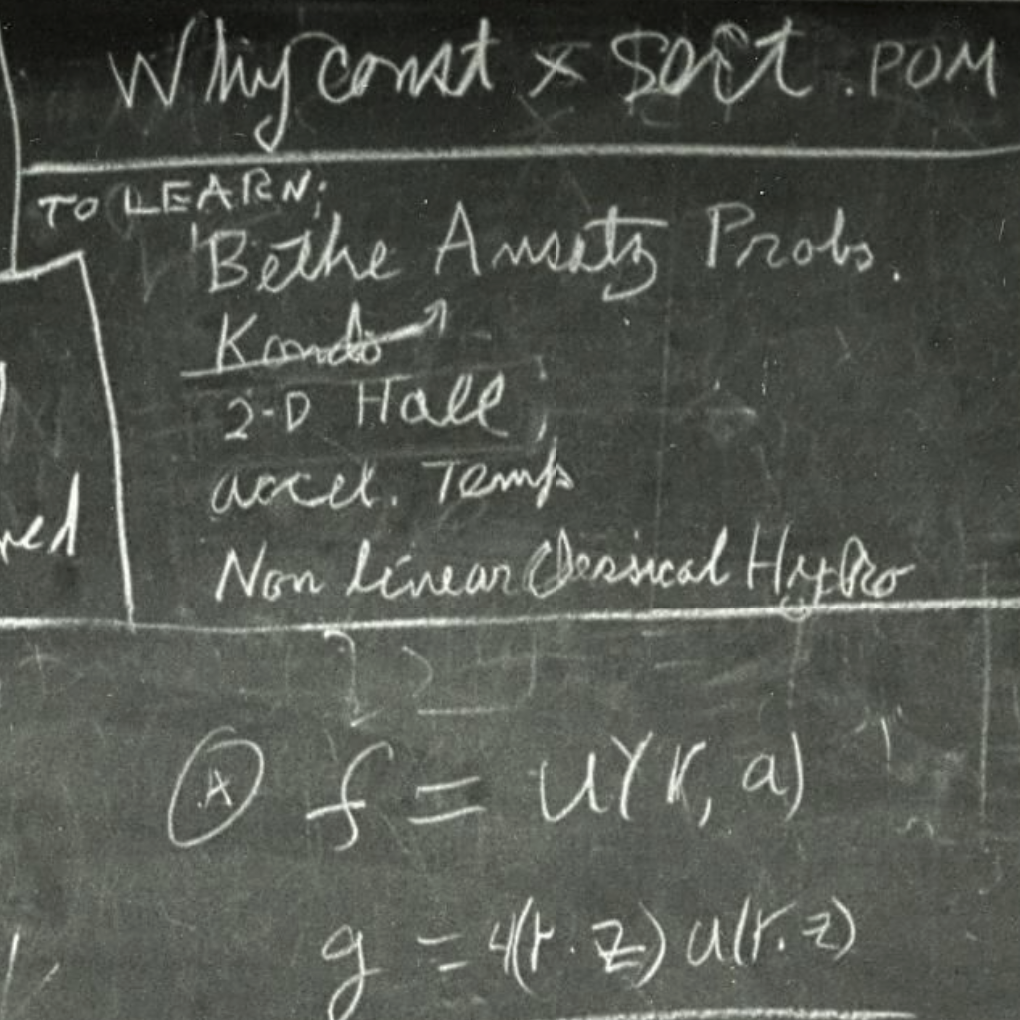 Why const × sort . POM
TO LEARN:
Bethe Ansatz Probs.
Kondo
2-D Hall
accel. Temps
Non linear Classical Hydro
ned
Ⓐ f = u(r, a)
g = 4(r·z) u(r.z)